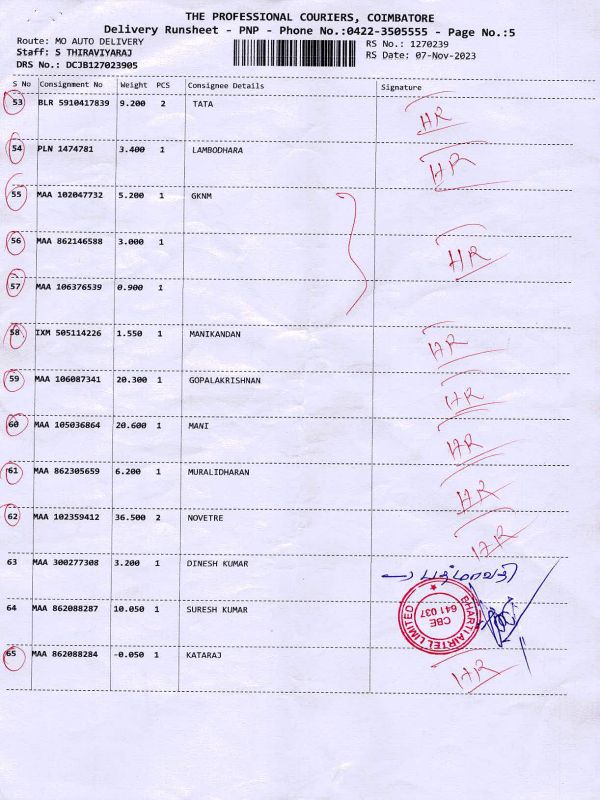 THE PROFESSIONAL COURIERS, COIMBATORE
Delivery Runsheet - PNP - Phone No.:0422-3505555 - Page No.:5
Route: MO AUTO DELIVERY
RS No.: 1270239
Staff: S THIRAVIYARAJ
RS Date: 07-Nov-2023
DRS No.: DCJB127023905
S No Consignment No Weight PCS Consignee Details Signature
53 BLR 5910417839 9.200 2 TATA HR
54 PLN 1474781 3.400 1 LAMBODHARA HR
55 MAA 102047732 5.200 1 GKNM
56 MAA 862146588 3.000 1 HR
57 MAA 106376539 0.900 1
58 IXM 505114226 1.550 1 MANIKANDAN HR
59 MAA 106087341 20.300 1 GOPALAKRISHNAN HR
60 MAA 105036864 20.600 1 MANI HR
61 MAA 862305659 6.200 1 MURALIDHARAN HR
62 MAA 102359412 36.500 2 NOVETRE HR
63 MAA 300277308 3.200 1 DINESH KUMAR பத்மாவதி
64 MAA 862088287 10.050 1 SURESH KUMAR
BHARTI AIRTEL LIMITED
CBE
641 037
65 MAA 862088284 -0.050 1 KATARAJ HR